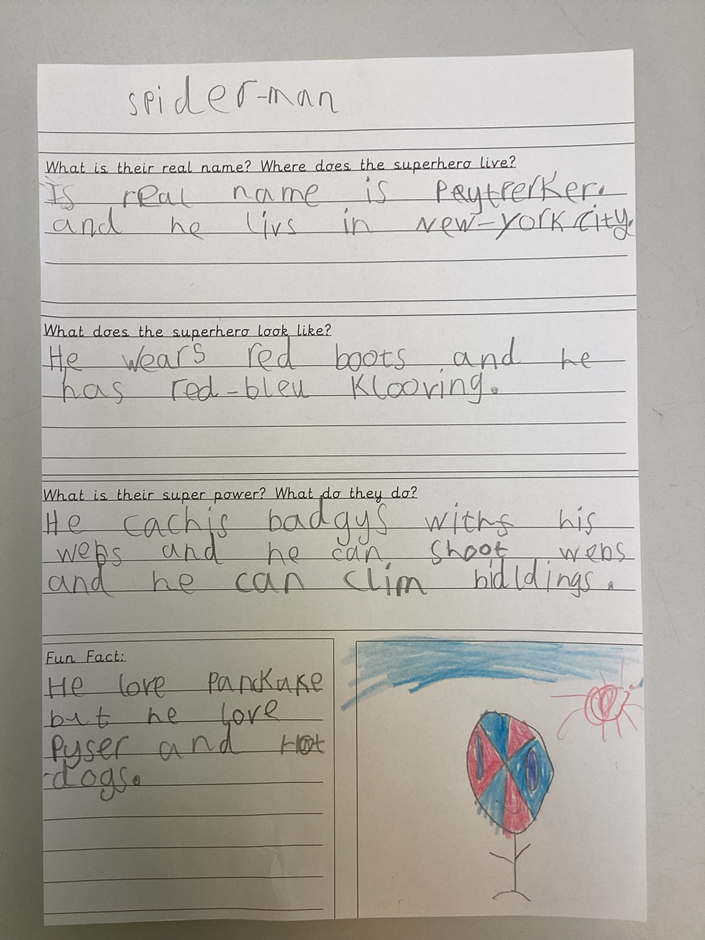 spider-man
What is their real name? Where does the superhero live?
Is real name is Peytrerker.
and he livs in New-york City.
What does the superhero look like?
He wears red boots and he
has red-bleu Klooving.
What is their super power? What do they do?
He cachis badgys withs his
webs and he can shoot webs
and he can clim bidldings.
Fun Fact:
He love Panckake
but he love
Pyser and Hot
dogs.